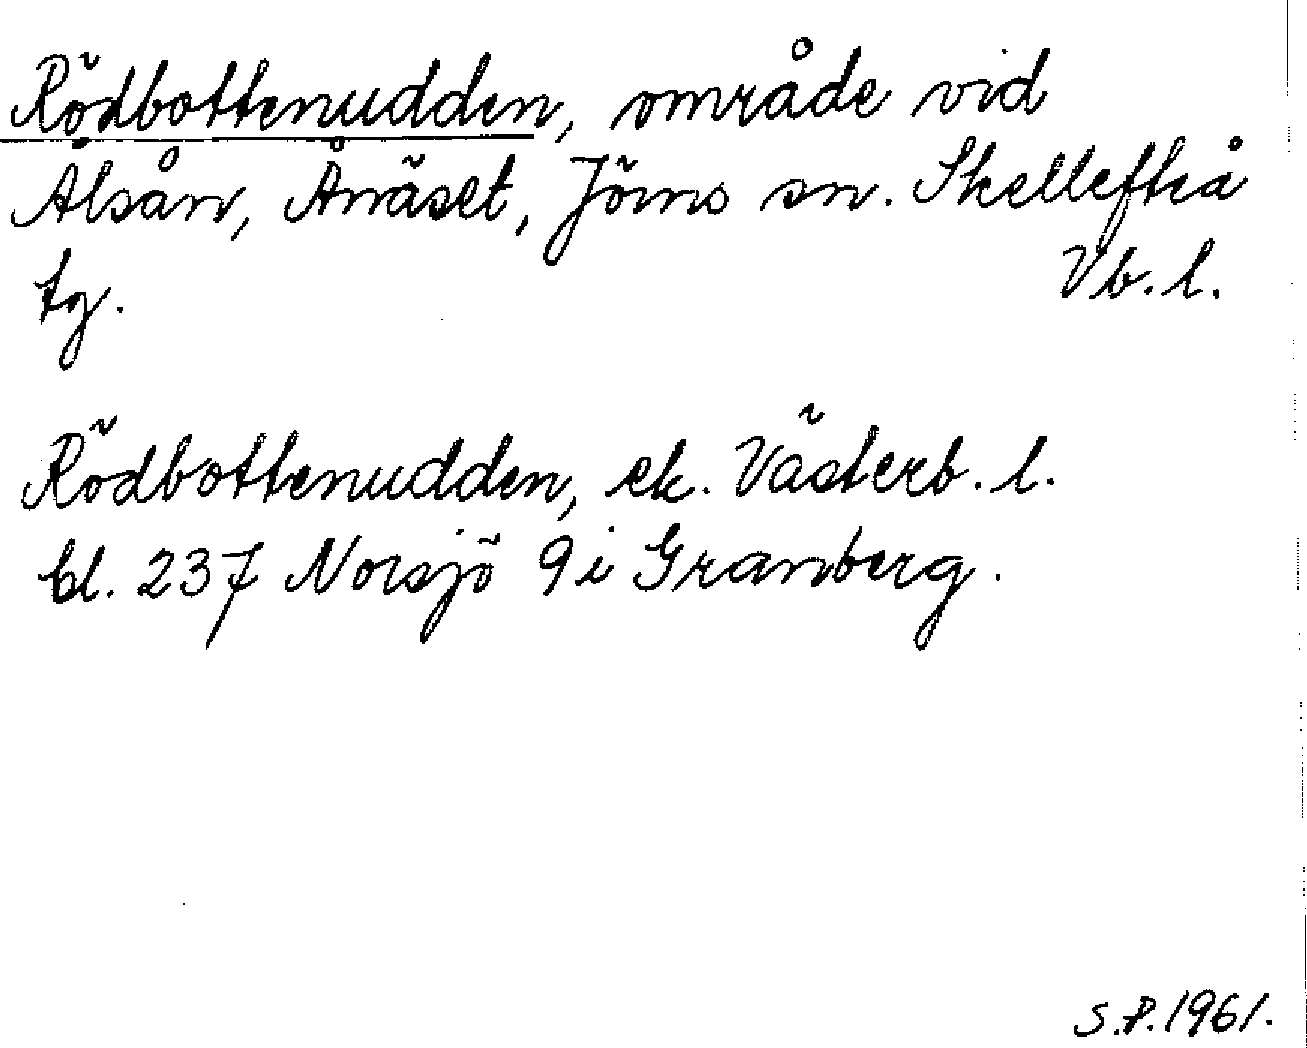 Rödbottenudden, område vid
Ålsån, Ånäset, Jörns sn. Skellefteå
tg. Vb. l.
Rödbottenudden, ek. Västerb. l.
bl. 237 Norsjö 9 i Granberg.
S.P. 1961.